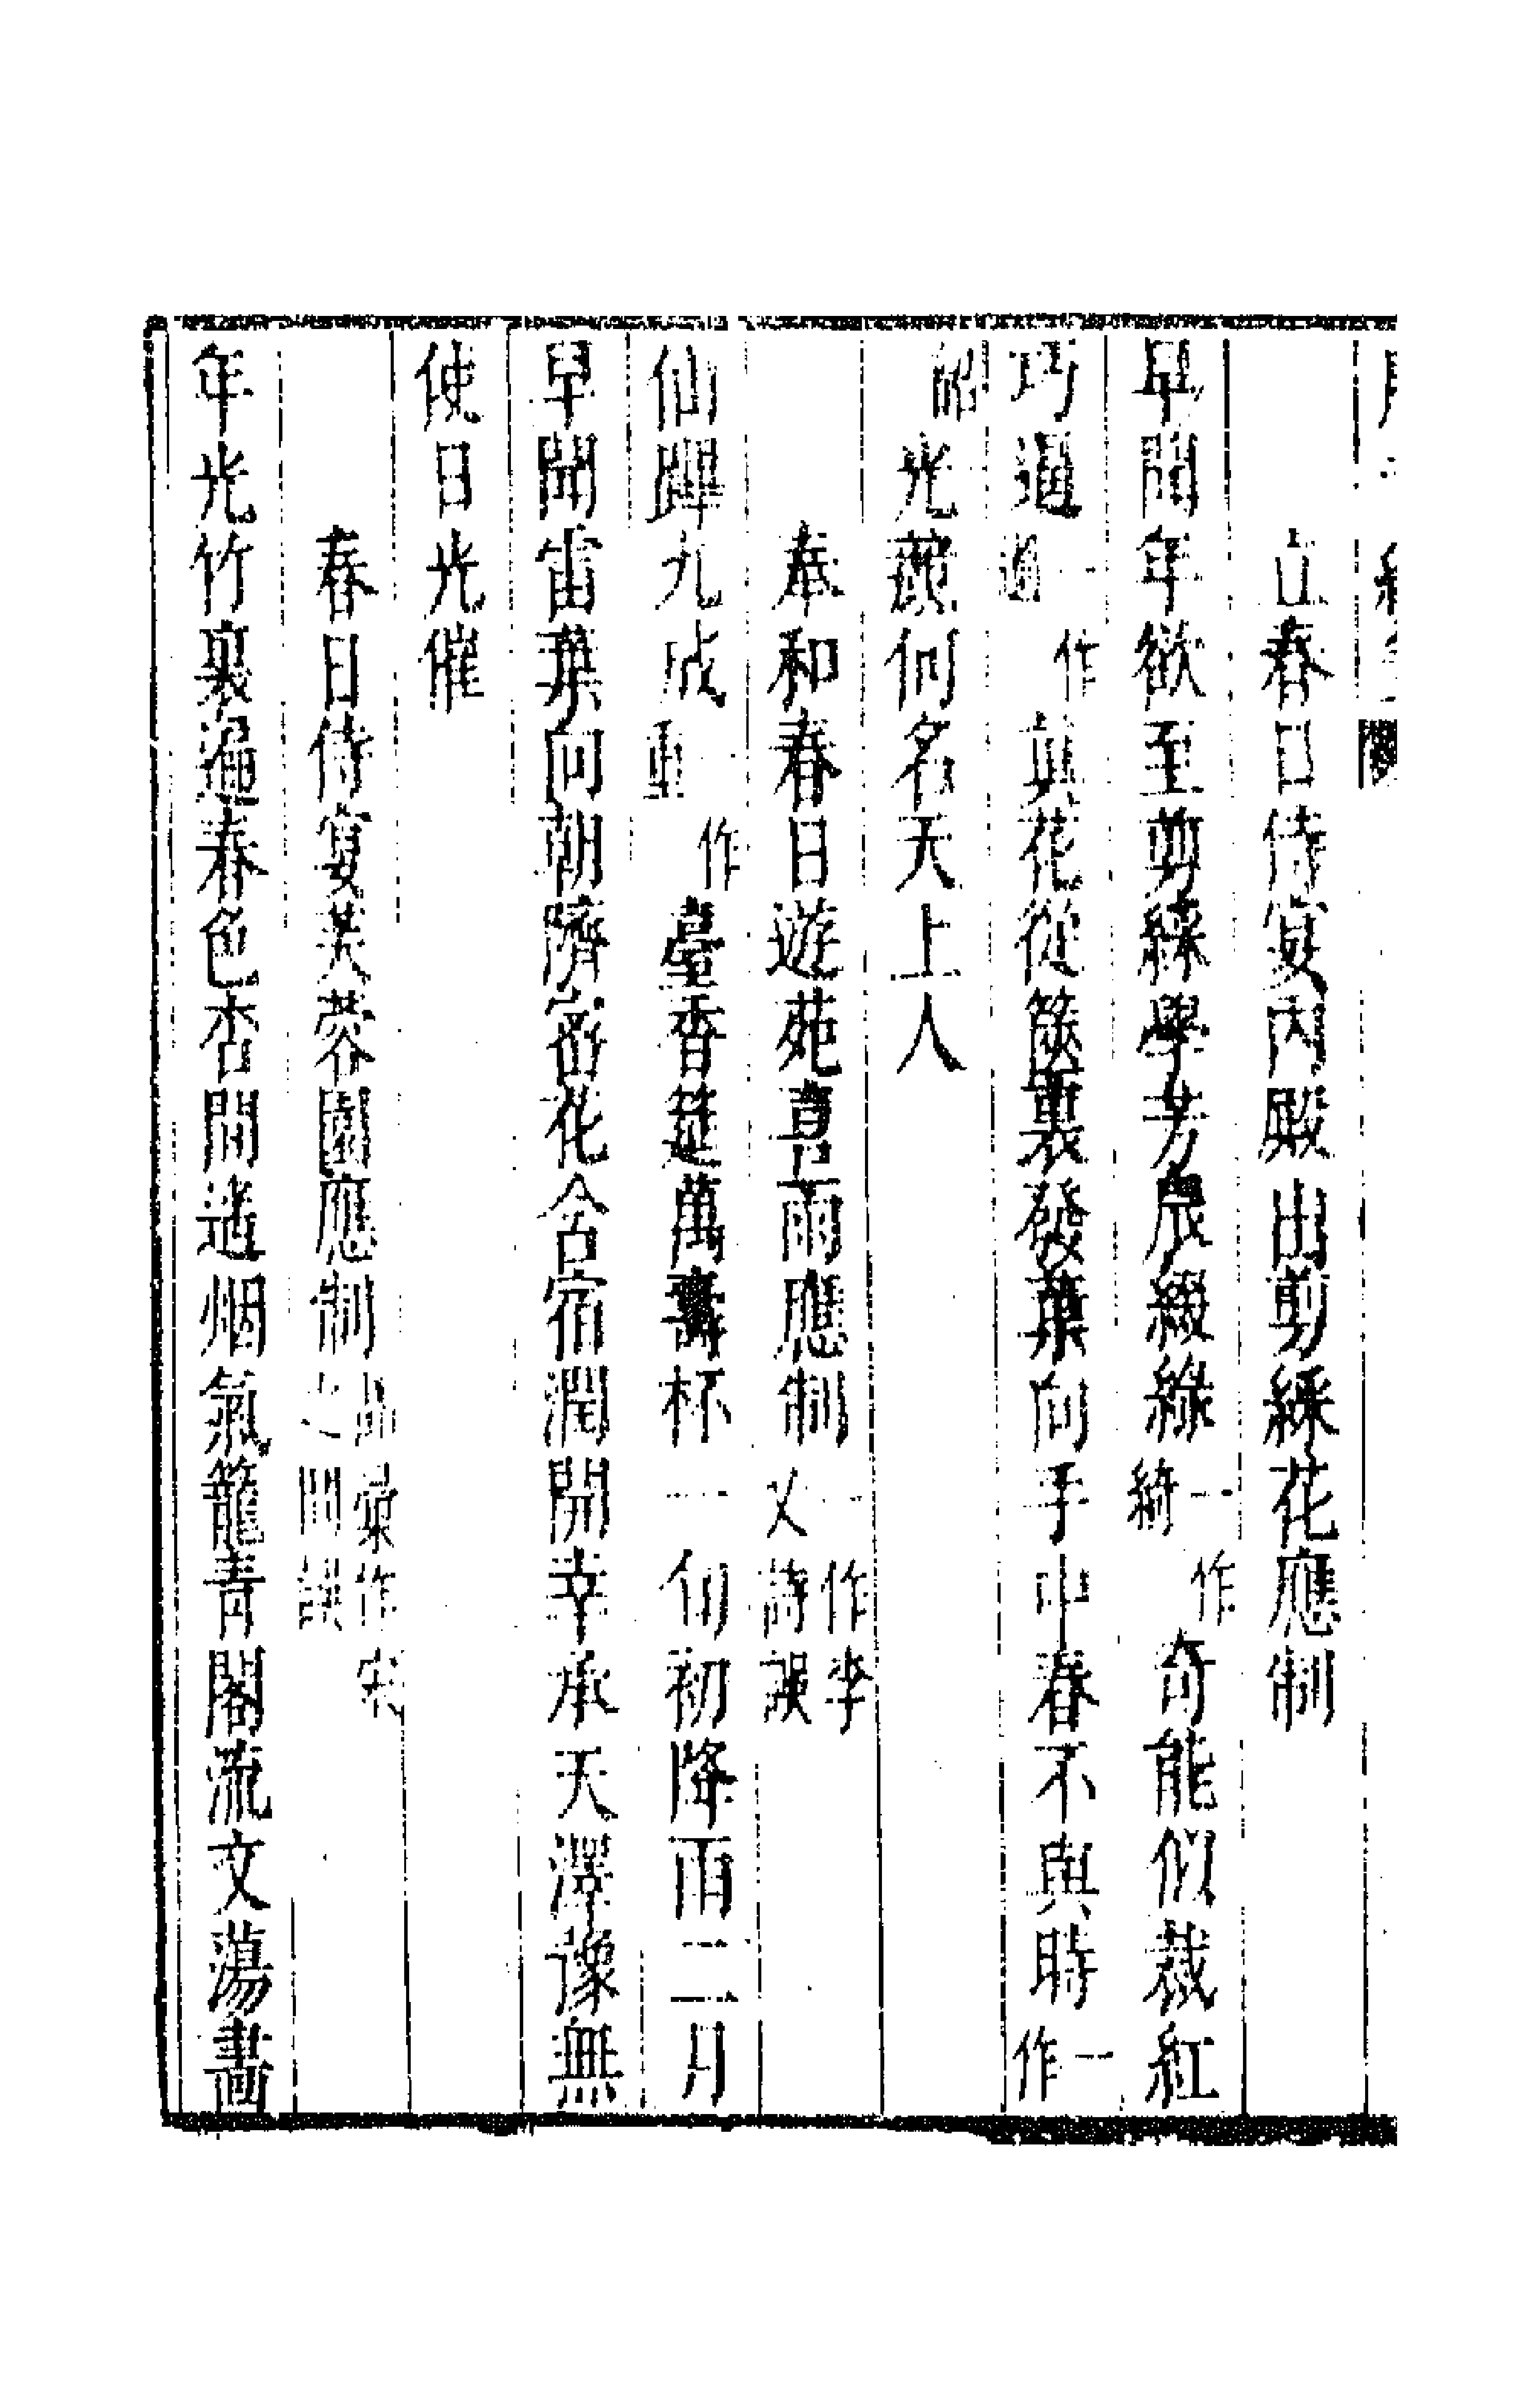 立春日侍宴內殿出剪綵花應制
早聞年欲至剪綵學芳辰綴綠一作綺奇能似裁紅
巧逼一作過真花從篋裏發葉向手中春不與時一作
韶光競何名天上人
奉和春日遊苑喜雨應制一作李乂詩誤
仙蹕九成一作重臺香筵萬壽杯一旬初降雨二月
早聞雷葉向朝隮密花含宿潤開幸承天澤豫無
使日光催
春日侍宴芙蓉園應制品彙作宋之問誤
年光竹裏遍春色杏間遙烟氣籠青閣流文蕩畫